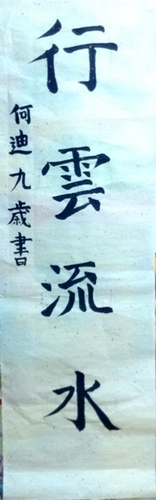 行雲流水
何迪九歲書